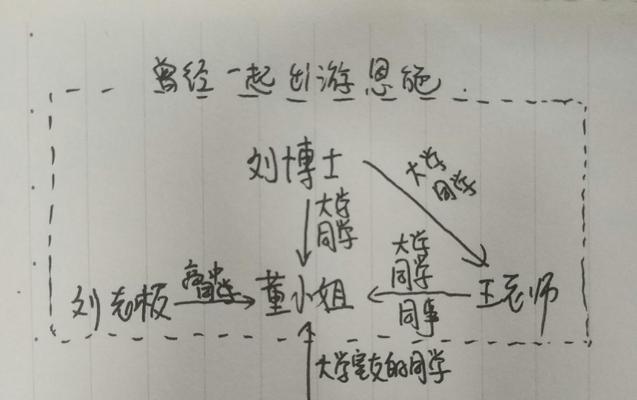 曾经一起出游恩施
刘博士
大学
同学
大学
同学
刘老板
高中
同学
董小姐
大学
同学
同事
王老师
大学室友的同学